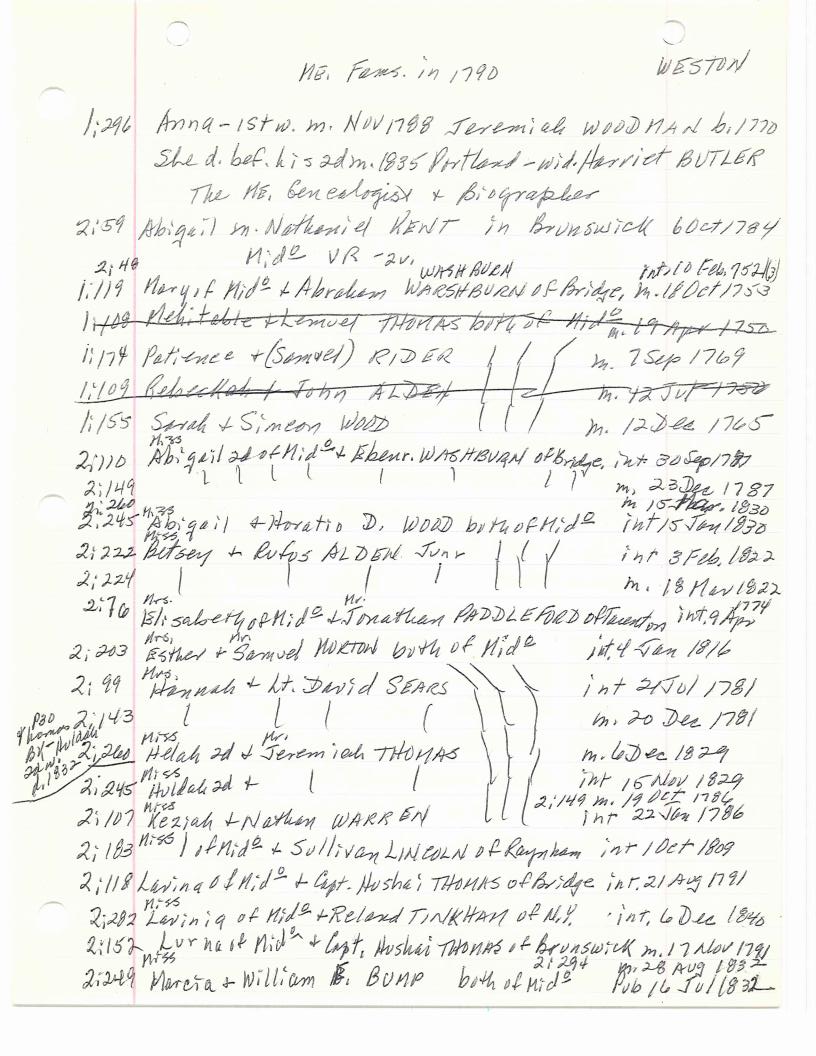 ME. Fams. in 1790 WESTON
1:296 Anna - 1st w. m. Nov 1788 Jeremiah WOODMAN b. 1770
She d. bef. his 2d m. 1835 Portland - wid. Harriet BUTLER
The ME. Genealogist & Biographer
2:59 Abigail m. Nathaniel KENT in Brunswick 6 Oct 1784
Midº VR - 2v.
2:48 WASHBURN int. 10 Feb. 752/(3)
1:119 Mary of Midº & Abraham WARSHBURN of Bridge, m. 18 Oct 1753
1:108 Mehitable & Lemuel THOMAS both of Midº m. 19 Apr 1750
1:174 Patience & (Samuel) RIDER m. 7 Sep 1769
1:109 Rebeckah & John ALDEN m. 12 Jul 1750
1:155 Sarah & Simeon WOOD m. 12 Dec 1765
Miss
2:110 Abigail 2d of Midº & Ebenr. WASHBURN of Bridge, int 30 Sep 1787
2:149 m. 23 Dec 1787
2:260 Miss m 15 Mar. 1830
2:245 Abigail & Horatio D. WOOD both of Midº int 15 Jan 1830
Miss
2:222 Betsey & Rufos ALDEN Junr int 3 Feb. 1822
2:224 m. 18 Mar 1822
Mrs. Mr. 1774
2:76 Elisabeth of Midº & Jonathan PADDLEFORD of Taunton int. 9 Apr
Mrs. Mr.
2:203 Esther & Samuel MORTON both of Midº int. 4 Jan 1816
Mrs.
2:99 Hannah & Lt. David SEARS int 21 Jul 1781
2:143 m. 20 Dec 1781
P30
Thomas
BK - Huldah
2d w.
d. 1832
Miss Mr.
2:260 Helah 2d & Jeremiah THOMAS m. 6 Dec 1829
Miss int 15 Nov 1829
2:245 Huldah 2d & 2:149 m. 19 Oct 1786
Miss
2:107 Keziah & Nathan WARREN int 22 Jan 1786
2:183 Miss of Midº & Sullivan LINCOLN of Raynham int 1 Oct 1809
2:118 Lavina of Midº & Capt. Hushai THOMAS of Bridge int. 21 Aug 1791
Miss
2:282 Lavinia of Midº & Reland TINKHAM of N.Y. int. 6 Dec 1840
2:152 Lurna of Midº & Capt. Hushai THOMAS of Brunswick m. 17 Nov 1791
Miss 2:294 m. 28 Aug 1832
2:249 Marcia & William E. BUMP both of Midº Pub 16 Jul 1832